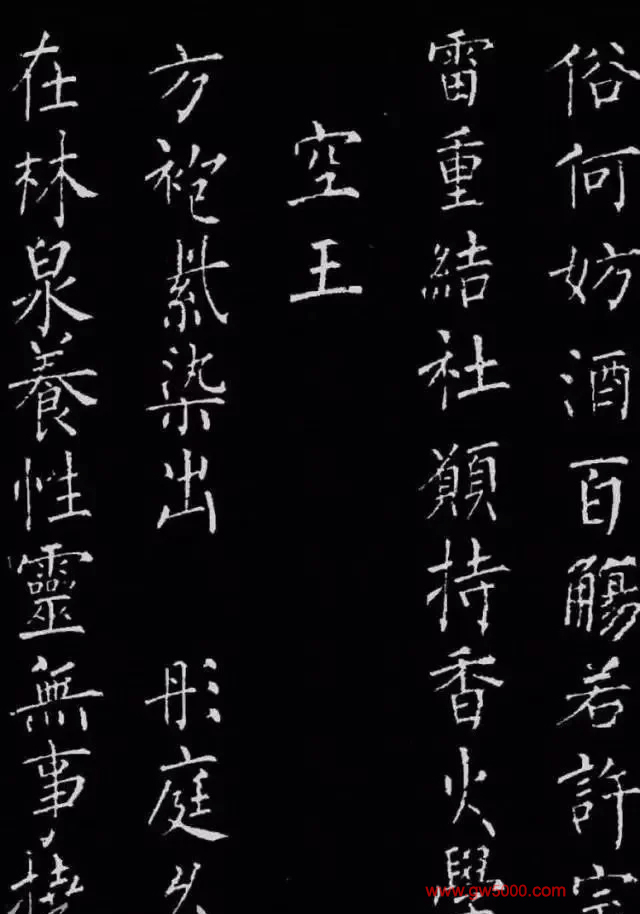 俗何妨酒百觴若許宗
雷重結社願持香火學
空王
方袍紫染出 彤庭久
在林泉養性靈無事接
www.gw5000.com